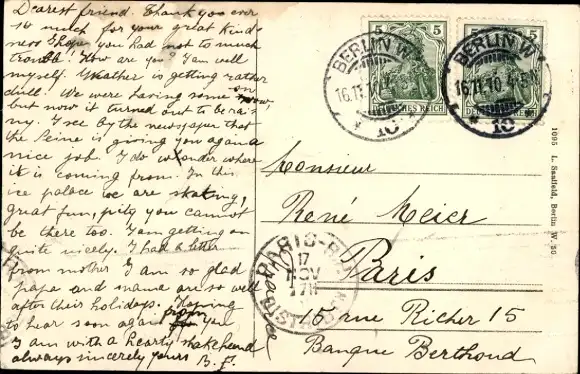 Dearest friend. Thank you ever
so much for your great kind-
ness I hope you had not to much
trouble! How are you? I am well
myself. Weather is getting rather
dull. We were having some snow,
but now it turned out to be rai-
ny. I see by the newspaper that
the Seine is giving you again a
nice job. I do wonder where
it is coming from. In this
ice palace we are skating,
great fun, pity you cannot
be there too. I am getting on
quite nicely. I had a letter
from mother I am so glad
papa and mama are so well
after their holidays. Hoping
to hear soon again from you
I am with a hearty shakehand
always sincerely yours B. F.
5
5
5
5
BERLIN W
16.11.10
10
BERLIN W
16.11.10
10
DEUTSCHES REICH
DEUTSCHES REICH
Monsieur
René Meier
Paris
15 rue Richer 15
Banque Berthoud
PARIS
17
NOV
DISTRIBUTION
1095 L. Saalfeld, Berlin W. 50